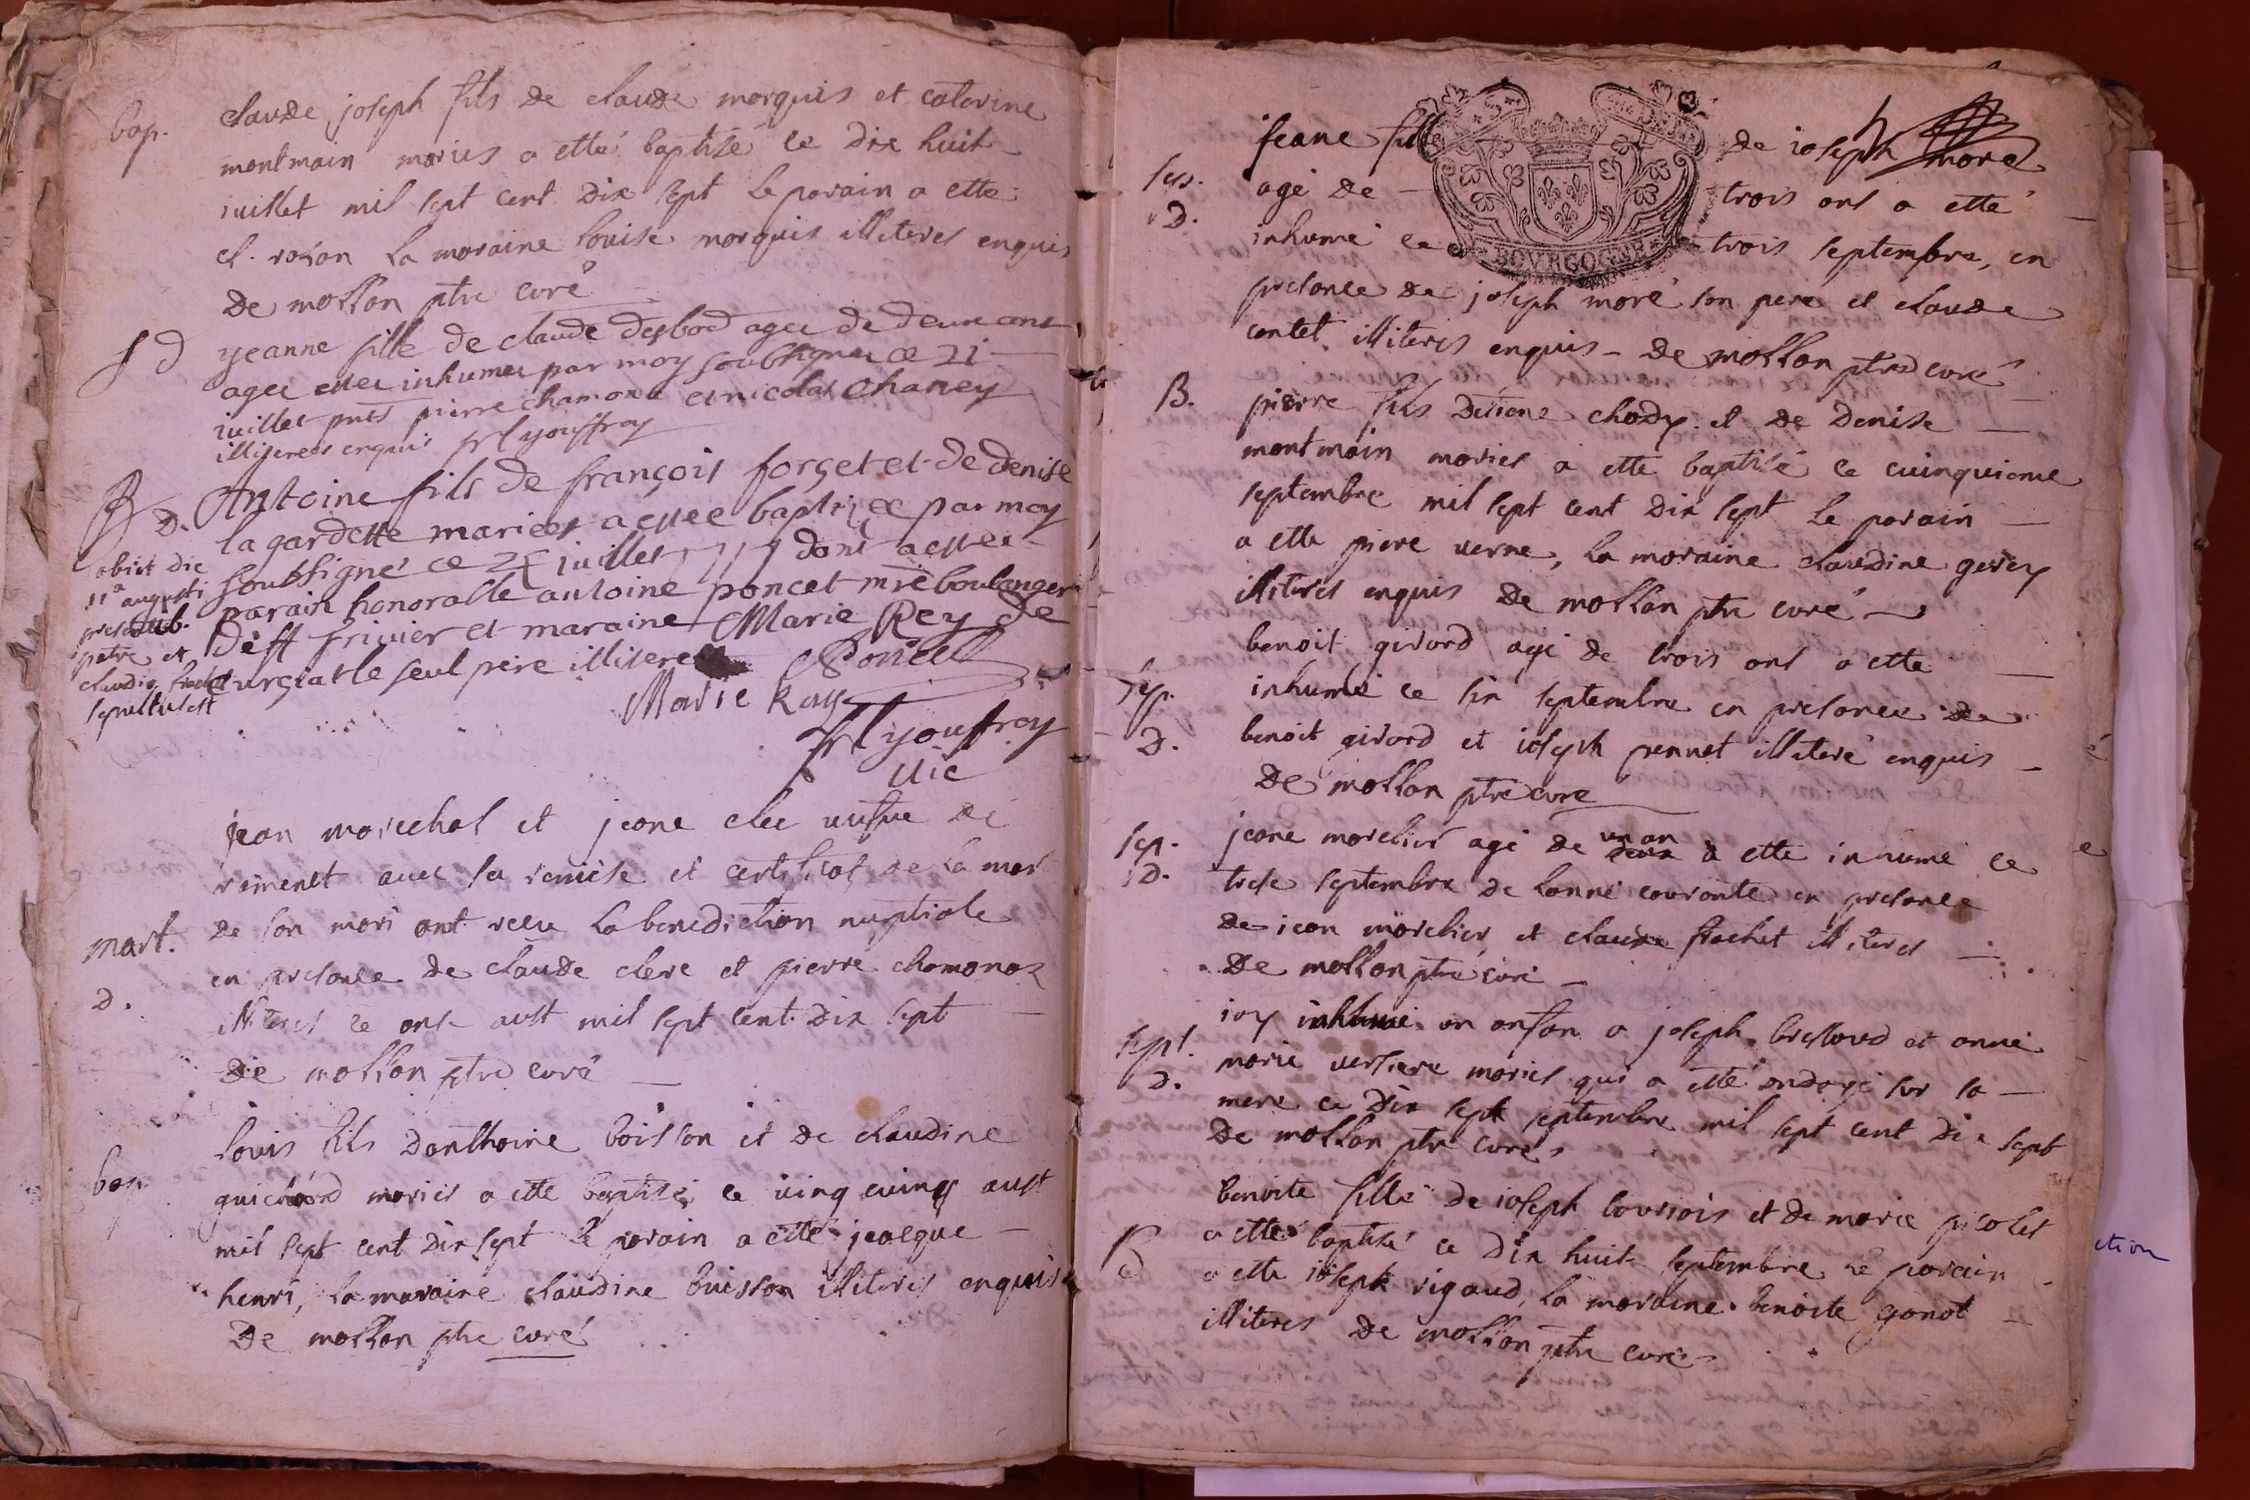 bap. claude joseph fils de claude morquis et caterine
montmain mariés a etté baptisé ce dix huit
juillet mil sept cent dix sept le parain a etté
cl. la moraine louise morquis illiteres enquis
de mollon ptre curé
S d yeanne fille de claude desbod agee de deux ans
agee estee inhumee par moy soubsigne ce 21
juillet pnts pierre chamona et nicolas Chaney
illiteres enquis frl youffroy
B D. Antoine fils de françois forget et de denise
la gardette mariees a estee baptizee par moy
soubsigné ce juillet 1717 dont a estee
parain honorable antoine poncet mre boulanger
et maraine Marie Rey de
le seul pere illitere
obiit die
11a augusti
patre et
claudio
sepultus est
Poncet
Marie Ray
frl youffroy
vic
mart.
d.
jean morechal et jeane clec de
avec sa remise et certificat de la mor
de son mari ont receu la benediction nuptiale
en presance de claude clerc et pierre chamonas
illiteres ce onse aust mil sept cent dix sept
de mollon ptre curé
bap. louis fils danthoine boisson et de claudine
mariés a etté baptisé ce vinq cuinq aust
mil sept cent dix sept le parain a etté jacque
henri, la maraine claudine buisson illiteres enquis
de mollon ptre curé
BOVRGOGNE
jeane fille de joseph moré
sep. agé de trois ans a etté
D. inhumé ce trois septembre, en
presance de joseph moré son pere et claude
contet illiteres enquis de mollon ptre curé
B. pierre fils detiene chody et de denise
montmain mariés a etté baptisé ce cuinquieme
septembre mil sept cent dix sept le parain
a etté piere verne, la moraine claudine
illiteres enquis de mollon ptre curé
benoit girord agé de trois ans a etté
sep. inhumé ce six septembre en presance de
D. benoit girord et joseph pennet illiteré enquis
de mollon ptre curé
sep. jeane morelier agé de un an a etté inhumé ce
D. trese septembre de lanné couronte en presance
de jean morelier et claude frachet illiteres
de mollon ptre curé
sept. jay inhumé un anfan a joseph bressoud et anne
D. marie mariés qui a etté ondoyé sur sa
mere ce dix sept septembre mil sept cent dix sept
de mollon ptre curé
benoite fille de joseph et de marie picolet
B a etté baptisé ce dix huit septembre le parain
a etté joseph rigaud, la moraine benoite gonot
illiteres de mollon ptre curé
ction